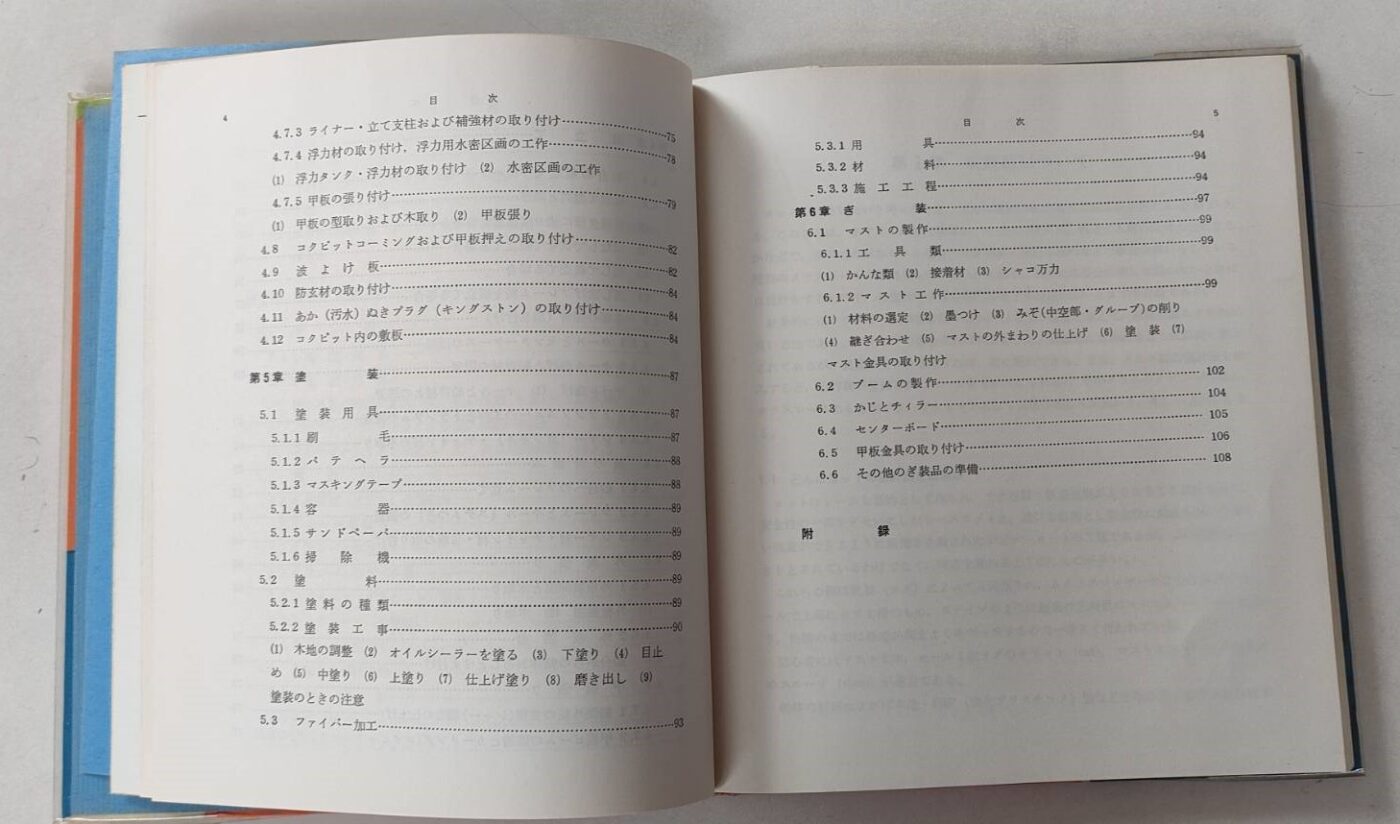 4
目 次
4.7.3 ライナー・立て支柱および補強材の取り付け……75
4.7.4 浮力材の取り付け，浮力用水密区画の工作……78
(1) 浮力タンク・浮力材の取り付け (2) 水密区画の工作
4.7.5 甲板の張り付け……79
(1) 甲板の型取りおよび木取り (2) 甲板張り
4.8 コクピットコーミングおよび甲板押えの取り付け……82
4.9 波よけ板……82
4.10 防玄材の取り付け……84
4.11 あか（汚水）ぬきプラグ（キングストン）の取り付け……84
4.12 コクピット内の敷板……84
第5章 塗 装……87
5.1 塗装用具……87
5.1.1 刷 毛……87
5.1.2 パテヘラ……88
5.1.3 マスキングテープ……88
5.1.4 容 器……89
5.1.5 サンドペーパー……89
5.1.6 掃 除 機……89
5.2 塗 料……89
5.2.1 塗料の種類……89
5.2.2 塗装工事……90
(1) 木地の調整 (2) オイルシーラーを塗る (3) 下塗り (4) 目止
め (5) 中塗り (6) 上塗り (7) 仕上げ塗り (8) 磨き出し (9)
塗装のときの注意
5.3 ファイバー加工……93
目 次
5
5.3.1 用 具……94
5.3.2 材 料……94
5.3.3 施工工程……94
第6章 ぎ 装……97
6.1 マストの製作……99
6.1.1 工 具 類……99
(1) かんな類 (2) 接着材 (3) シャコ万力
6.1.2 マスト工作……99
(1) 材料の選定 (2) 墨つけ (3) みぞ(中空部・グループ)の削り
(4) 継ぎ合わせ (5) マストの外まわりの仕上げ (6) 塗 装 (7)
マスト金具の取り付け
6.2 ブームの製作……102
6.3 かじとチィラー……104
6.4 センターボード……105
6.5 甲板金具の取り付け……106
6.6 その他のぎ装品の準備……108
附 録